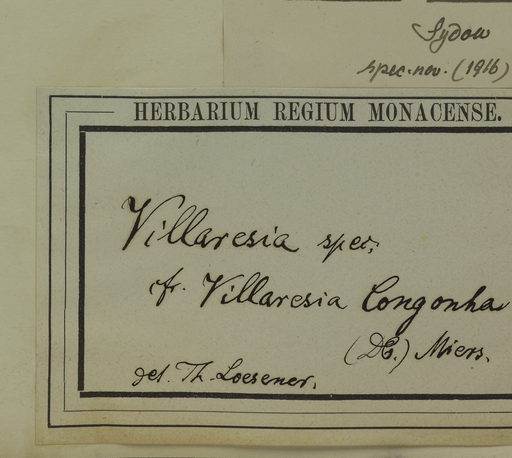 Sydow
spec. nov. (1916)
HERBARIUM REGIUM MONACENSE.
Villaresia spec;
cfr. Villaresia Congonha
(DC.) Miers.
det. Th. Loesener.